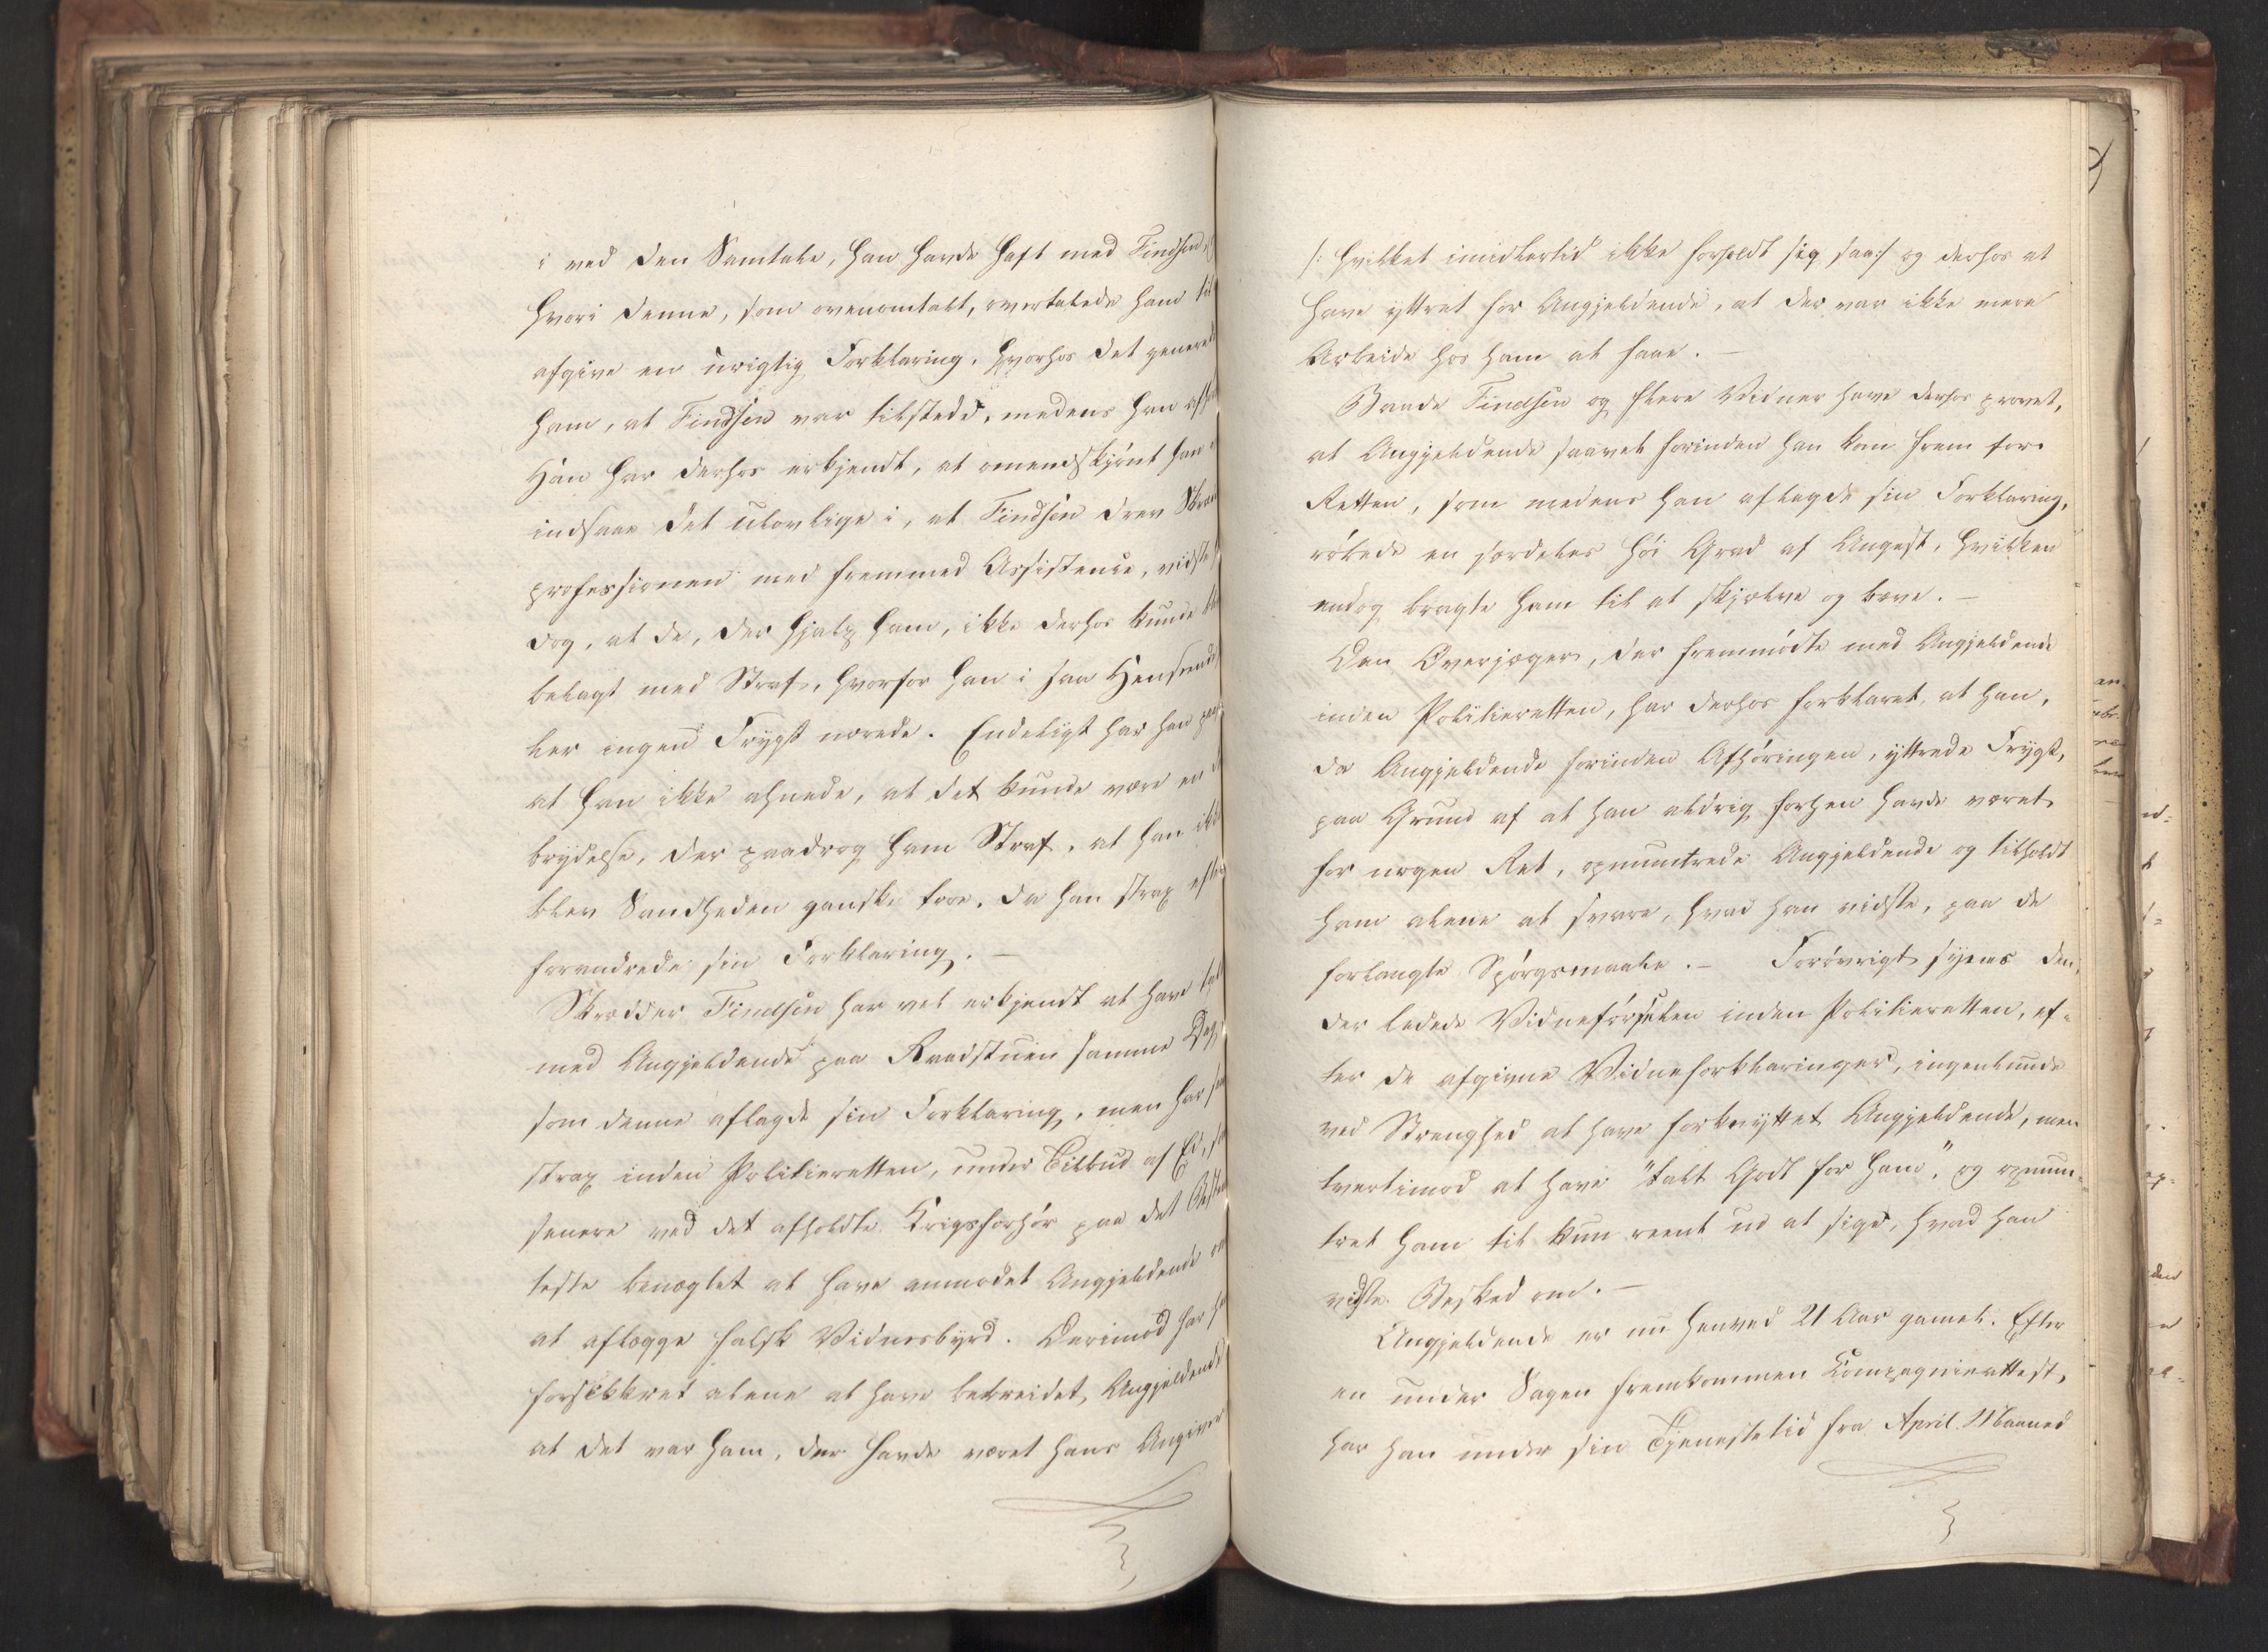 i ved den Samtale, han havde haft med Findsen,
hvori denne, som ovenomtalt, overtalede ham til
afgive en urigtig Forklaring, hvorhos det generede
ham, at Findsen var tilstede, medens han
Han har derhos erkjendt, at omendskjönt han
indsaae det ulovlige i, at Findsen drev
professionen med fremmed Assistence, vidste
dog, at de, der hjalp ham, ikke derhos kunde
belagt med Straf, hvorfor han i saa Henseende
ler ingen Frygt nærede. Endeligt har han
at han ikke ahnede, at det kunde være en
brydelse, der paadrog ham Straf, at han ikke
blev Sandheden ganske troe, da han strax efter
forandrede sin Forklaring. –
Skrædder Findsen har vel erkjendt at have talt
med Angjeldende paa Raadstuen samme Dag,
som denne aflagde sin Forklaring, men har
strax inden Politieretten, under Tilbud af Eed,
senere ved det afholdte Krigsforhör paa det
teste benægtet at have anmodet Angjeldende om
at aflægge falsk Vidnesbyrd. Derimod har han
forsikkret alene at have bebreidet Angjeldende
at det var ham, der havde været hans Angiver
/: hvilket imidlertid ikke forholdt sig saa :/ og derhos at
have yttret for Angjeldende, at der var ikke mere
Arbeide hos ham at faae. –
Baade Findsen og flere Vidner have derhos provet,
at Angjeldende saavel forinden han kom frem for
Retten, som medens han aflagde sin Forklaring,
röbede en særdeles höi Grad af Angest, hvilken
endog bragte ham til at skjælve og bæve. –
Den Overjæger, der fremmödte med Angjeldende
inden Politieretten, har derhos forklaret, at han,
da Angjeldende forinden Afhöringen, yttrede Frygt,
paa Grund af at han aldrig forhen havde været
for nogen Ret, opmuntrede Angjeldende og tilholdt
ham alene at svare, hvad han vidste, paa de
forlangte Spörgsmaale. – Forövrigt synes den,
der ledede Vidneförselen inden Politieretten, ef-
ter de afgivne Vidneforklaringer, ingenlunde
ved Strenghed at have forknyttet Angjeldende, men
tvertimod at have "talt Godt for ham," og opmun-
tret ham til kun reent ud at sige, hvad han
vidste Besked om. –
Angjeldende er nu henved 21 Aar gamel. Efter
en under Sagen fremkommen Compagnieattest,
har han under sin Tjenestetid fra April Maaned